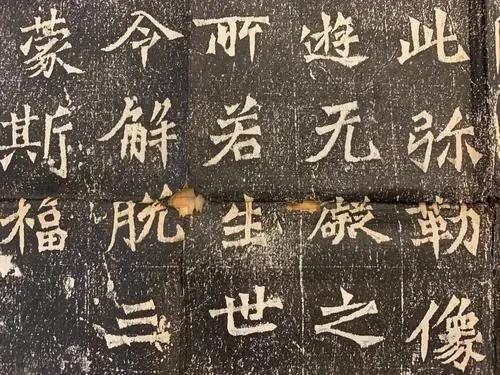 此弥勒像
遊无礙之
所若生世
令解脱三
蒙斯福